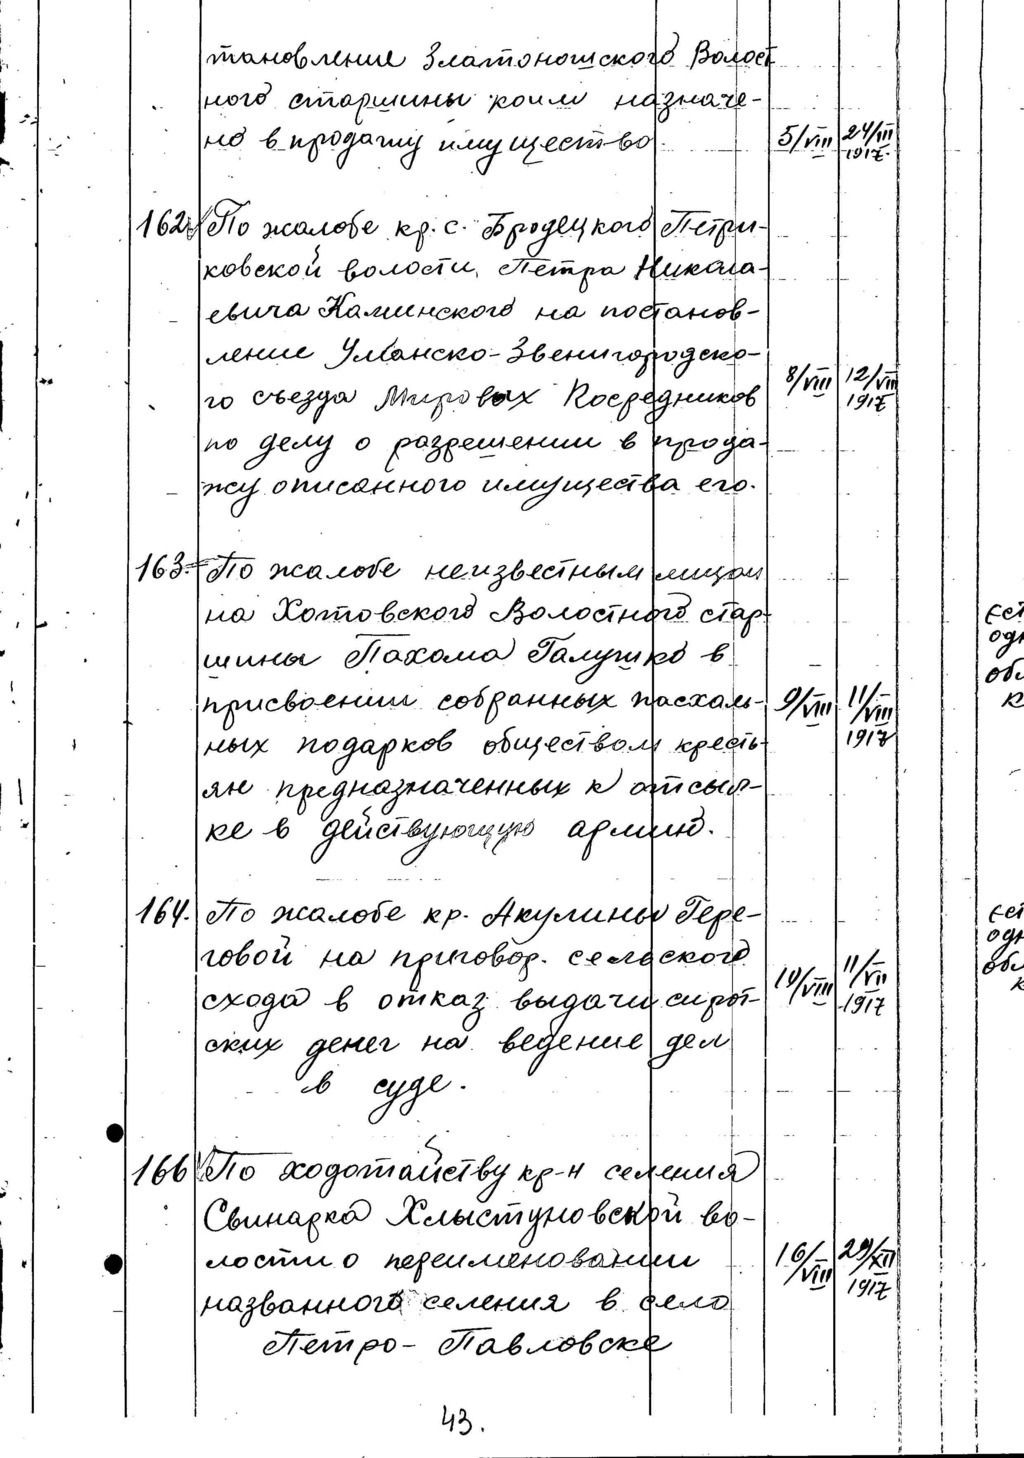 тановление Златоношского Волост
ного старшины коим назначе-
но в продажу имущество. 5/VIII 24/III 1917.
162. По жалобе кр. с. Бродецкого Петри-
ковской волости, Петра Никола-
евича Каминского на постанов-
ление Уманско-Звенигородско-
го съезда Мировых Посредников 8/VIII 12/VII 1917
по делу о разрешении в прода-
жу описанного имущества его.
163. По жалобе неизвестным лицом
на Хотовского Волостного стар-
шины Пахома Галушко в
присвоении собранных пасхаль- 9/VIII 11/VIII 1917
ных подарков обществом кресть-
ян предназначенных к отсыл-
ке в действующую армию.
164. По жалобе кр. Акулины Гере-
говой на приговор. сельского
схода в отказ выдачи сирот- 10/VIII 11/VII 1917
ских денег на ведение дел
в суде.
166 По ходотайству кр-н селения
Свинарка Хлыстуновской во-
лости о переименовании 16/VIII 29/XII 1917
названного селения в село
Петро-Павловске
43.
ест
одн
обл
к
ест
одн
обл
к